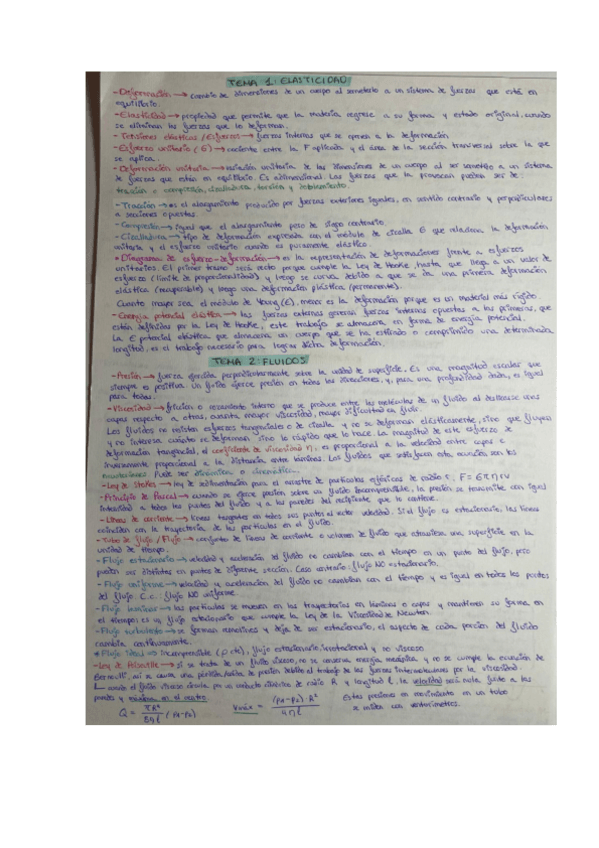 TEMA 1: ELASTICIDAD
-Deformación → cambio de dimensiones de un cuerpo al someterlo a un sistema de fuerzas que está en
equilibrio.
-Elasticidad → propiedad que permite que la materia regrese a su forma y estado original, cuando
se eliminan las fuerzas que la deforman.
-Tensiones elásticas / Esfuerzos → fuerzas internas que se oponen a la deformación
-Esfuerzo unitario (G) → cociente entre la F aplicada y el área de la sección transversal sobre la que
se aplica.
-Deformación unitaria → variación unitaria de las dimensiones de un cuerpo al ser sometido a un sistema
de fuerzas que están en equilibrio. Es adimensional. Las fuerzas que la provocan pueden ser de:
tracción o compresión, cizalladura, torsión y doblamiento.
-Tracción → es el alargamiento producido por fuerzas exteriores iguales, en sentido contrario y perpendiculares
a secciones opuestas.
-Compresión → igual que el alargamiento pero de signo contrario.
-Cizalladura → tipo de deformación expresada con el módulo de cizalla G que relaciona la deformación
unitaria y el esfuerzo unitario cuando es puramente elástico.
*Diagrama de esfuerzo-deformación → es la representación de deformaciones frente a esfuerzos
unitarios. El primer tramo será recto porque cumple la Ley de Hooke, hasta que llega a un valor de
esfuerzo (límite de proporcionalidad) y luego se curva debido a que se da una primera deformación
elástica (recuperable) y luego una deformación plástica (permanente).
Cuanto mayor sea el módulo de Young (E), menor es la deformación porque es un material más rígido.
-Energía potencial elástica → las fuerzas externas generan fuerzas internas opuestas a las primeras, que
están definidas por la Ley de Hooke, este trabajo se almacena en forma de energía potencial.
La E potencial elástica que almacena un cuerpo que se ha estirado o comprimido una determinada
longitud, es el trabajo necesario para lograr dicha deformación.
TEMA 2: FLUIDOS
-Presión → fuerza ejercida perpendicularmente sobre la unidad de superficie. Es una magnitud escalar que
siempre es positiva. Un fluido ejerce presión en todas las direcciones, y, para una profundidad dada, es igual
para todas.
-Viscosidad → fricción o rozamiento interno que se produce entre las moléculas de un fluido al deslizarse unas
capas respecto a otras, cuanta mayor viscosidad, mayor dificultad en fluir.
Los fluidos no resisten esfuerzos tangenciales o de cizalla y no se deforman elásticamente, sino que fluyen
y no interesa cuánto se deforman, sino lo rápido que lo hace. La magnitud de este esfuerzo de
deformación tangencial, el coeficiente de viscosidad η, es proporcional a la velocidad entre capas e
inversamente proporcional a la distancia entre láminas. Los fluidos que satisfacen esta ecuación son los
newtonianos. Puede ser dinámica o cinemática.
-Ley de Stokes → ley de sedimentación para el arrastre de partículas esféricas de radio r, F = 6πηrv
-Principio de Pascal → cuando se ejerce presión sobre un fluido incompresible, la presión se transmite con igual
intensidad a todos los puntos del fluido y a las paredes del recipiente que lo contiene.
-Líneas de corriente → líneas tangentes en todos sus puntos al vector velocidad. Si el flujo es estacionario, las líneas
coinciden con la trayectoria de las partículas en el fluido.
-Tubo de flujo / Flujo → conjunto de líneas de corriente o volumen de fluido que atraviesa una superficie en la
unidad de tiempo.
-Flujo estacionario → velocidad y aceleración del fluido no cambian con el tiempo en un punto del flujo, pero
pueden ser distintas en puntos de diferente sección. Caso contrario: flujo NO estacionario.
-Flujo uniforme → velocidad y aceleración del fluido no cambian con el tiempo y es igual en todos los puntos
del flujo. C.c: flujo NO uniforme
-Flujo laminar → las partículas se mueven en las trayectorias en láminas o capas y mantienen su forma en
el tiempo; es un flujo estacionario que cumple la Ley de la Viscosidad de Newton.
-Flujo turbulento → se forman remolinos y deja de ser estacionario, el aspecto de cada porción del fluido
cambia continuamente.
*Flujo ideal → incompresible (ρ cte), flujo estacionario, irrotacional y no viscoso
-Ley de Poiseuille → si se trata de un fluido viscoso, no se conserva energía mecánica y no se cumple la ecuación de
Bernoulli, así se causa una pérdida de presión debido al trabajo de las fuerzas intermoleculares por la viscosidad.
cuando el fluido viscoso circula por un conducto cilíndrico de radio R y longitud l, la velocidad será nula junto a las
paredes y máxima en el centro.
Q = πR⁴/8ηl (pA-p2) Vmáx = (pA-p2) R²/4ηl Estas presiones en movimiento en un tubo
se miden con venturímetros.